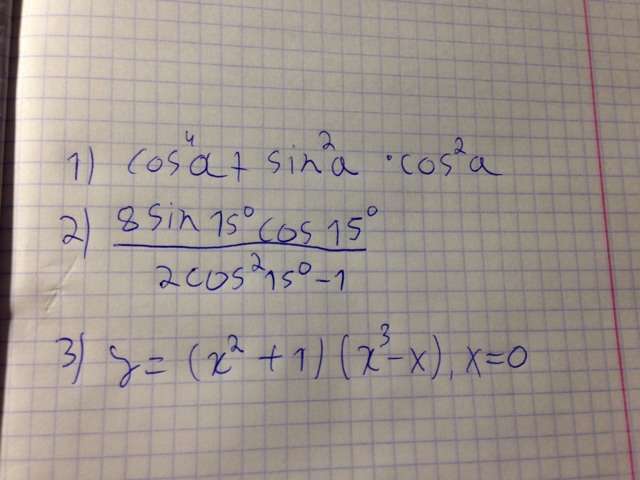 1) cos⁴a + sin²a · cos²a
2) 8 sin 15° cos 15° / 2cos²15° - 1
3) y = (x² + 1)(x³ - x), x = 0